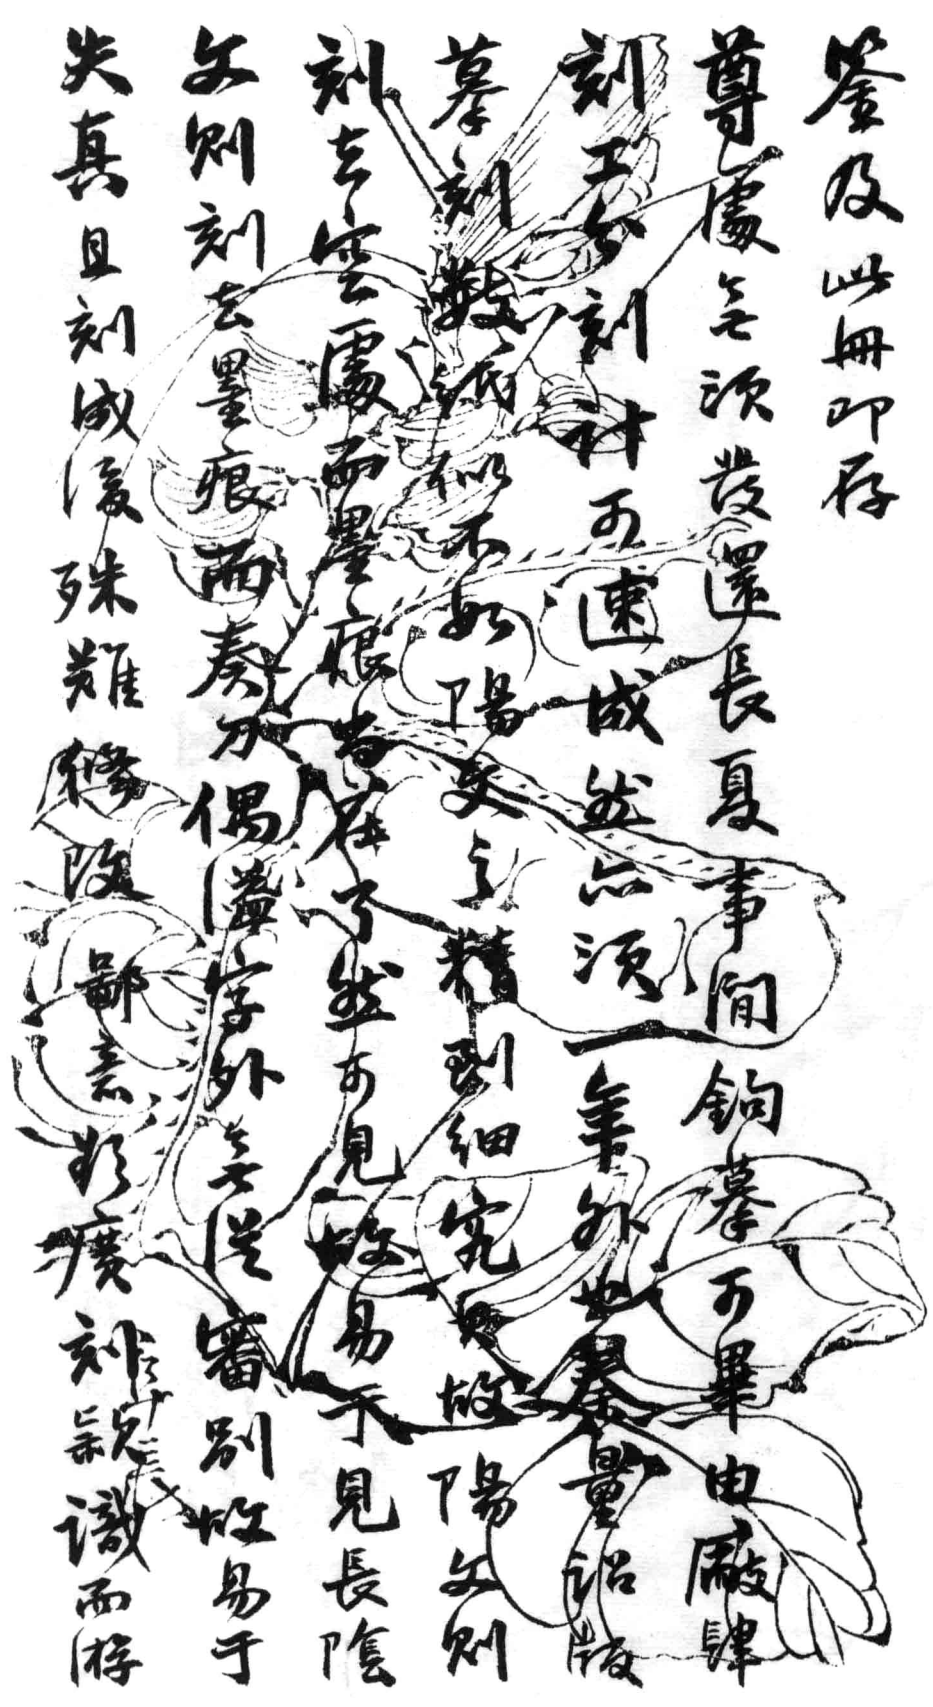 鉴及此冊即存
尊處無須發還長夏事閒鉤摹可畢由廠肆
刻工分刻計可速成然亦須一年外也秦量詔版
摹刻數紙似不如陽文之精到細究其故陽文則
刻去空處而墨痕尚存了然可見故易于見長陰
文則刻去墨痕而奏刀偶溢字外無從審別故易于
失真且刻成後殊難修改鄙意擬廣刻款識而游